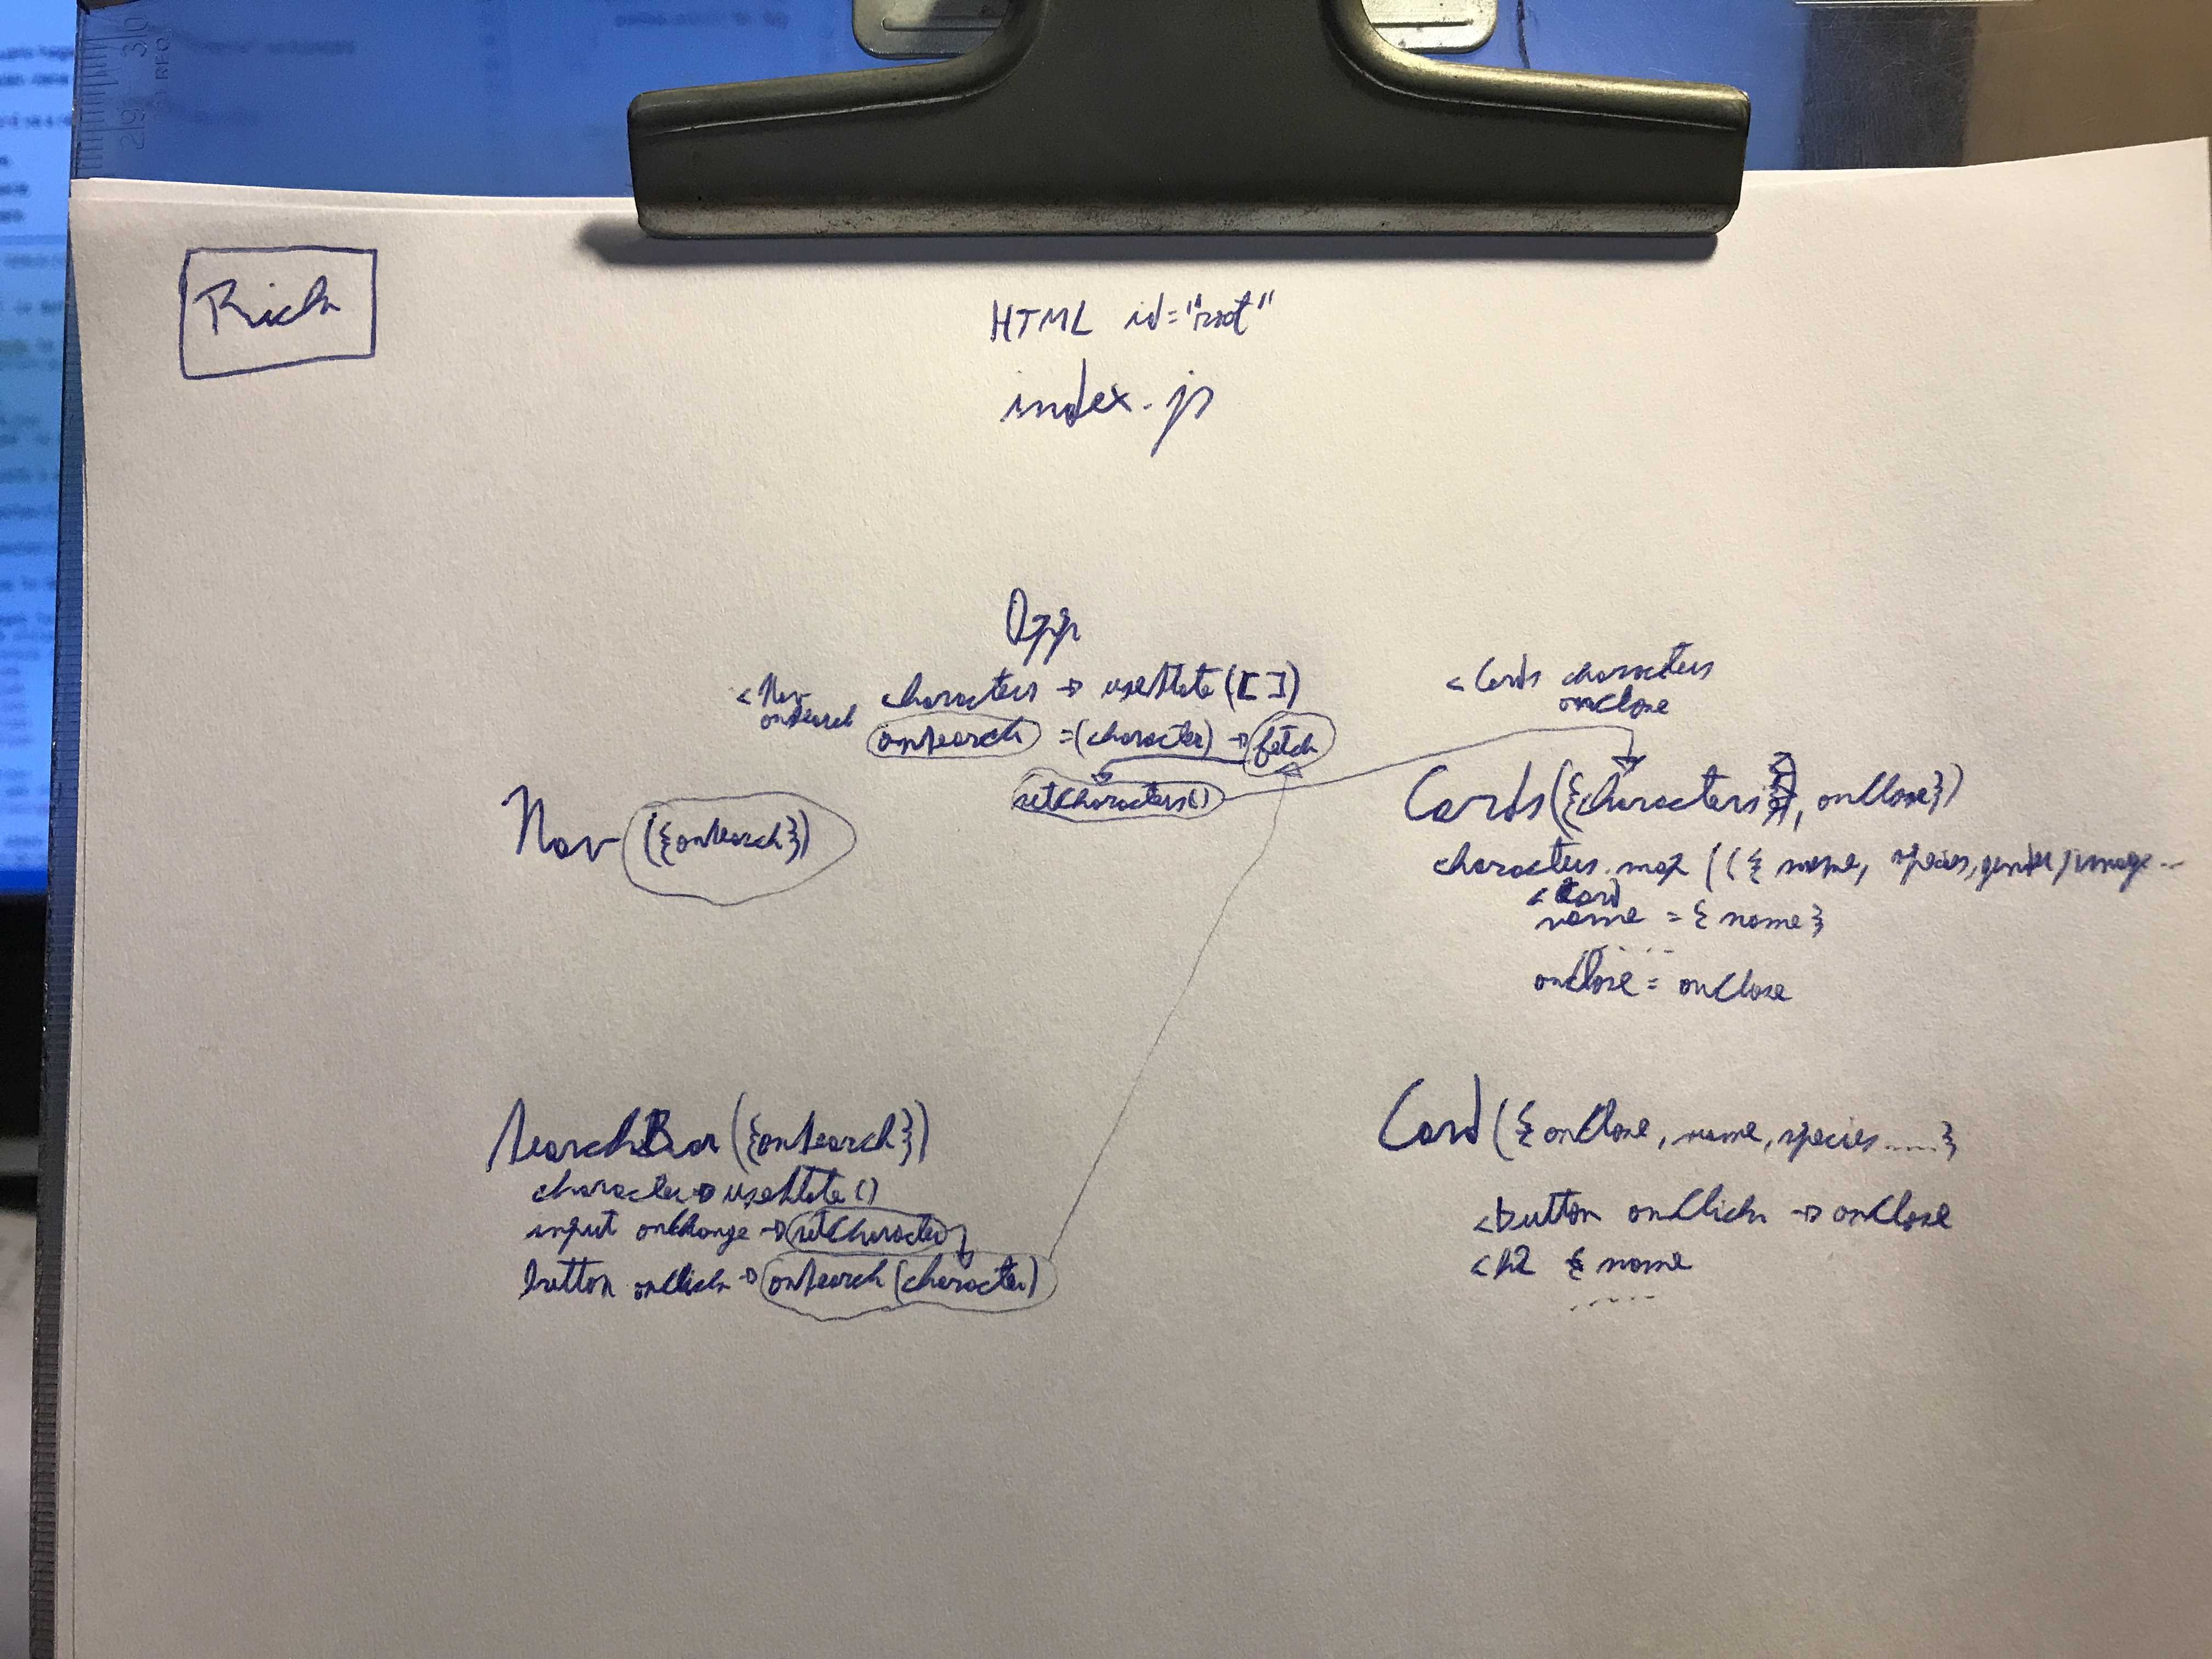 Rick
HTML id="root"
index.js
App
<Nav
onSearch
characters → useState([ ])
onSearch = (character) → fetch
setCharacters()
<Cards characters
onClose
Nav ({onSearch})
Cards({characters, onClose})
characters.map (({ name, species, gender, image...
<Card
name = {name}
.....
onClose = onClose
SearchBar ({onSearch})
character → useState()
input onChange → setCharacter
button onClick → onSearch (character)
Card ({onClose, name, species.....}
<button onClick → onClose
<h2 { name
.....
30
29